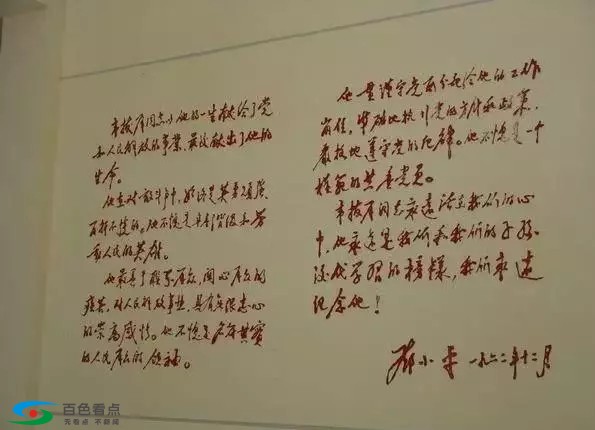 韦拔群同志以他的一生献给了党
和人民解放的事業，最后献出了他的
生命。
他在对敌斗争中，始终是英勇顽强，
百折不挠的。他不愧是无产阶级和劳
动人民的英雄。
他最善于联系群众，关心群众的
疾苦，对人民解放事业，具有无限忠心
的崇高感情。他不愧是名符其实
的人民群众的领袖。
他一贯谨守党所分配给他的工作
岗位，準确地执行党的方针和政策，
严格地遵守党的纪律。他不愧是一个
模范的共产党员。
韦拔群同志永远活在我们的心
中，他永远是我们和我们的子孙
後代学习的榜样，我们永远
纪念他！
邓小平 一九六二年十二月
百色看点
无看点 不新闻